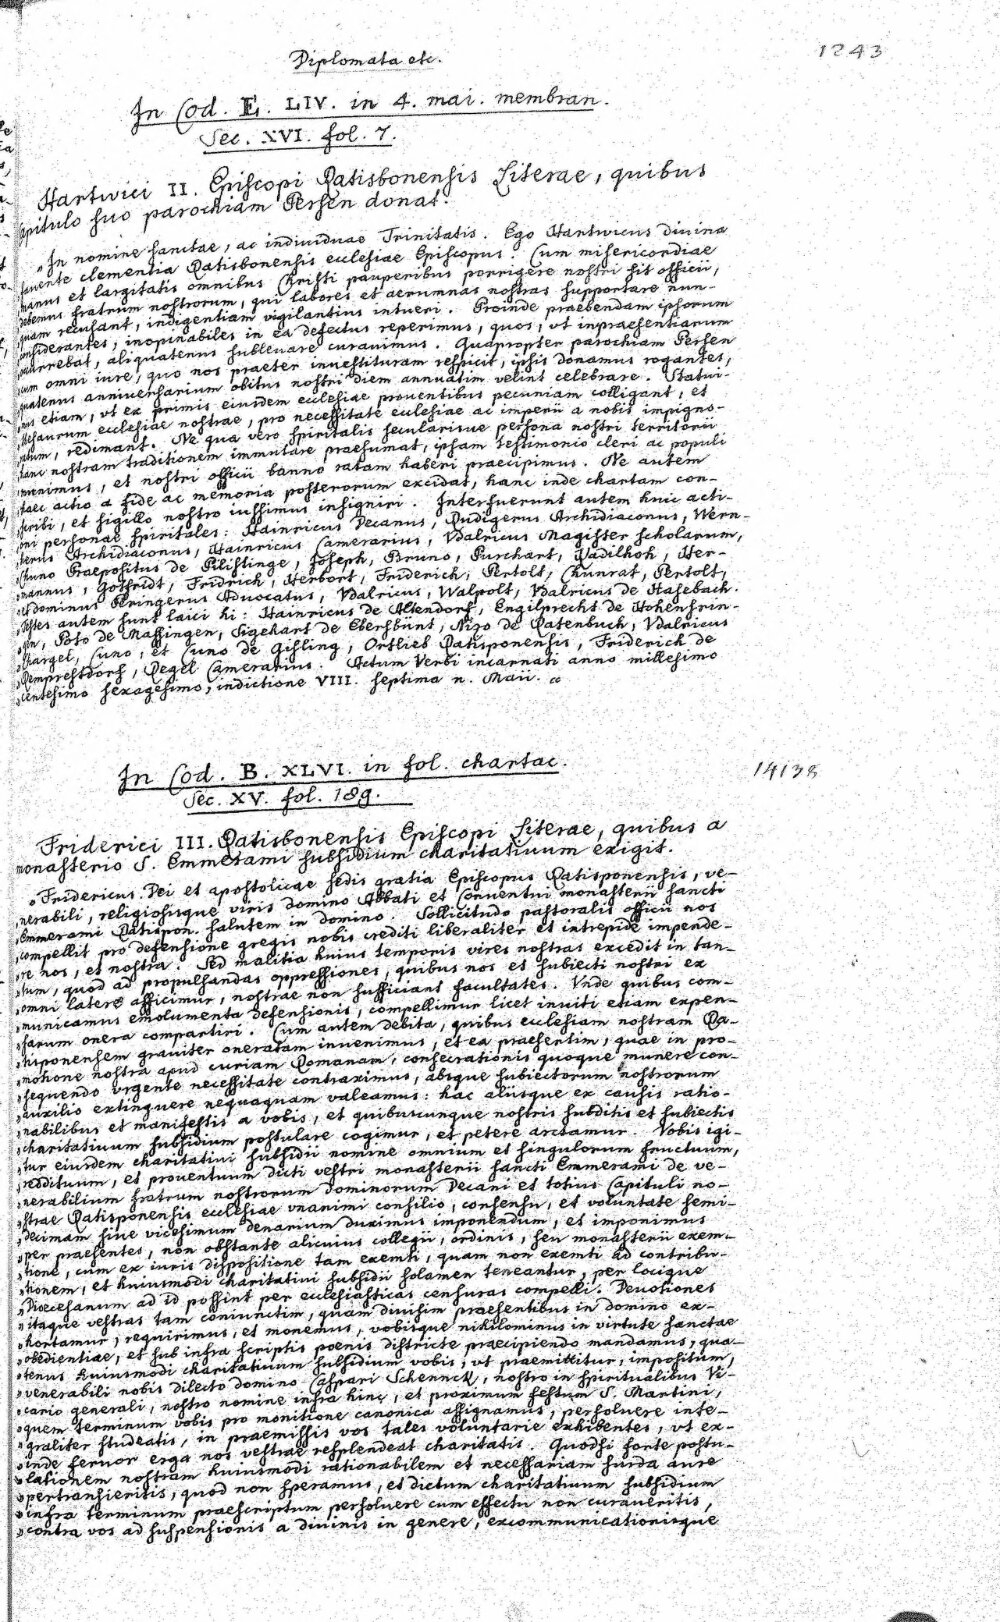 1243
Diplomata etc.
In Cod. E. LIV. in 4. mai. membran.
Sec. XVI. fol. 7.
Hartwici II. Episcopi Ratisbonensis Literae, quibus
pitulo suo parochiam Persen donat.
„In nomine sanctae, ac individuae Trinitatis. Ego Hartwicus divina
favente clementia Ratisbonensis ecclesiae Episcopus. Cum misericordiae
manus et largitatis omnibus Christi pauperibus porrigere nostri sit officii,
debemus fratrum nostrorum, qui labores et aerumnas nostras supportare nun-
quam recusant, indigentiam vigilantius intueri. Proinde praebendam ipsorum
nsiderantes, inopinabiles in ea defectus reperimus, quos, vt inpraesentiarum
currebat, aliquatenus sublevare curavimus. Quapropter parochiam Persen
cum omni iure, quo nos praeter investituram respicit, ipsis donamus rogantes,
quatenus anniversarium obitus nostri diem annuatim velint celebrare. Statui-
mus etiam, vt ex primis eiusdem ecclesiae proventibus pecuniam colligant, et
thesaurum ecclesiae nostrae, pro necessitate ecclesiae ac imperii a nobis impigno-
ratum, redimant. Ne qua vero spiritalis secularisve persona nostri territorii
hanc nostram traditionem immutare praesumat, ipsam testimonio cleri ac populi
munimus, et nostri officii banno ratam haberi praecipimus. Ne autem
haec actio a fide ac memoria posterorum excidat, hanc inde chartam con-
scribi, et sigillo nostro iussimus insigniri. Interfuerunt autem huic acti-
oni personae spiritales: Hainricus Decanus, Rudigerus Archidiaconus, Wern-
herus Archidiaconus, Hainricus Camerarius, Vdalricus Magister scholarum,
Chuno Praepositus de Pilistinge, Joseph, Bruno, Purchart, Wadilhoh, Her-
mannus, Gotfridt, Fridrich, Herbort, Friderich, Pertolt, Chunrat, Pertolt,
et dominus Peringerus Advocatus, Vdalricus, Walpolt, Vdalricus de Hasebach.
Testes autem sunt laici hi: Hainricus de Altendorf, Engilprecht de Hohenstrin-
gen, Poto de Massingen, Sigehart de Ebersbünt, Nizo de Ratenbuch, Vdalricus
Chargel, Cuno, et Cuno de Gisling, Ortlieb Ratisponensis, Friderich de
Remprehstdorf, Regel Camerarius. Actum Verbi incarnati anno millesimo
centesimo sexagesimo, indictione VIII. septima n. Maii. „
In Cod. B. XLVI. in fol. chartac.
14138
Sec. XV. fol. 189.
Friderici III. Ratisbonensis Episcopi Literae, quibus a
monasterio S. Emmerami subsidium charitativum exigit.
„Fridericus Dei et apostolicae sedis gratia Episcopus Ratisponensis, ve-
„nerabili, religiosisque viris domino Abbati et Conventui monasterii sancti
„Emmerami Ratispon. salutem in domino. Sollicitudo pastoralis officii nos
„compellit pro defensione gregis nobis crediti liberaliter et intrepide impende-
„re nos, et nostra. Sed malitia huius temporis vires nostras excedit in tan-
„tum, quod ad propulsandas oppressiones, quibus nos et subiecti nostri ex
„omni latere afficimur, nostrae non sufficiant facultates. Vnde quibus com-
„municamus emolumenta defensionis, compellimur licet inviti etiam expen-
„sarum onera compartiri. Cum autem debita, quibus ecclesiam nostram Ra-
„tisponensem graviter oneratam invenimus, et ea praesertim, quae in pro-
„motione nostra apud curiam Romanam, consecrationis quoque munere con-
„sequendo vrgente necessitate contraximus, absque subiectorum nostrorum
„auxilio extinguere nequaquam valeamus: hac aliisque ex causis ratio-
„nabilibus et manifestis a vobis, et quibuscunque nostris subditis et subiectis
„charitativum subsidium postulare cogimur, et petere arctamur. Vobis igi-
„tur eiusdem charitativi subsidii nomine omnium et singulorum fructuum,
„reddituum, et proventuum dicti vestri monasterii sancti Emmerami de ve-
„nerabilium fratrum nostrorum dominorum Decani et totius Capituli no-
„strae Ratisponensis ecclesiae vnanimi consilio, consensu, et voluntate semi-
„decimam sive vicesimum denarium duximus imponendum, et imponimus
„per praesentes, non obstante alicuius collegii, ordinis, seu monasterii exem-
„tione, cum ex iuris dispositione tam exemti, quam non exemti ad contribu-
„tionem, et huiusmodi charitativi subsidii solamen teneantur, per locique
„Dioecesanum ad id possint per ecclesiasticas censuras compelli. Devotiones
„itaque vestras tam coniunctim, quam divisim praesentibus in domino ex-
„hortamur, requirimus, et monemus, vobisque nihilominus in virtute sanctae
„obedientiae, et sub infra scriptis poenis districte praecipiendo mandamus, qua-
„tenus huiusmodi charitativum subsidium vobis, vt praemittitur, impositum,
„venerabili nobis dilecto domino Caspari Schennck, nostro in spiritualibus Vi-
„cario generali, nostro nomine infra hinc, et proximum festum S. Martini,
„quem terminum vobis pro monitione canonica assignamus, persolvere inte-
„graliter studeatis, in praemissis vos tales voluntarie exhibentes, vt ex-
„inde fervor erga nos vestrae resplendeat charitatis. Quodsi forte postu-
„lationem nostram huiusmodi rationabilem et necessariam surda aure
„pertransieritis, quod non speramus, et dictum charitativum subsidium
„infra terminum praescriptum persolvere cum effectu non curaveritis,
„contra vos ad suspensionis a divinis in genere, excommunicationisque